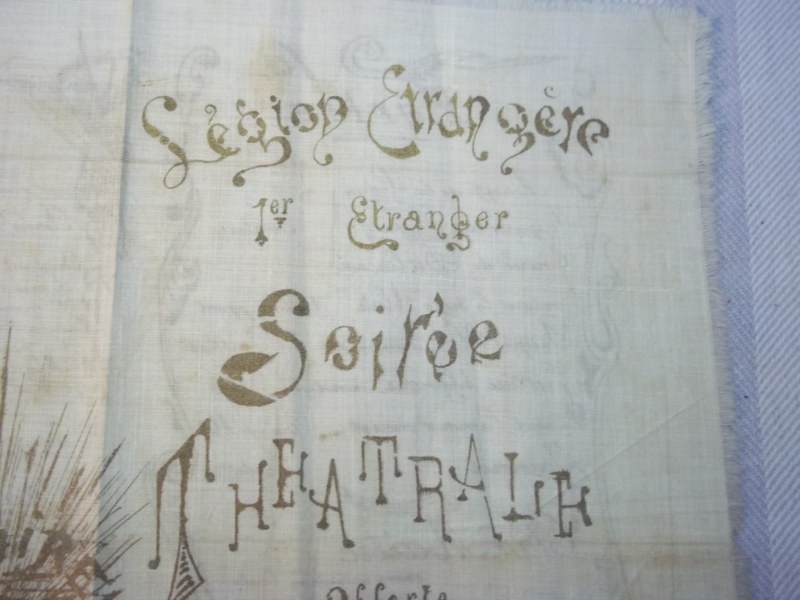 Légion Etrangère
1er Etranger
Soirée
THEATRALE
Offerte